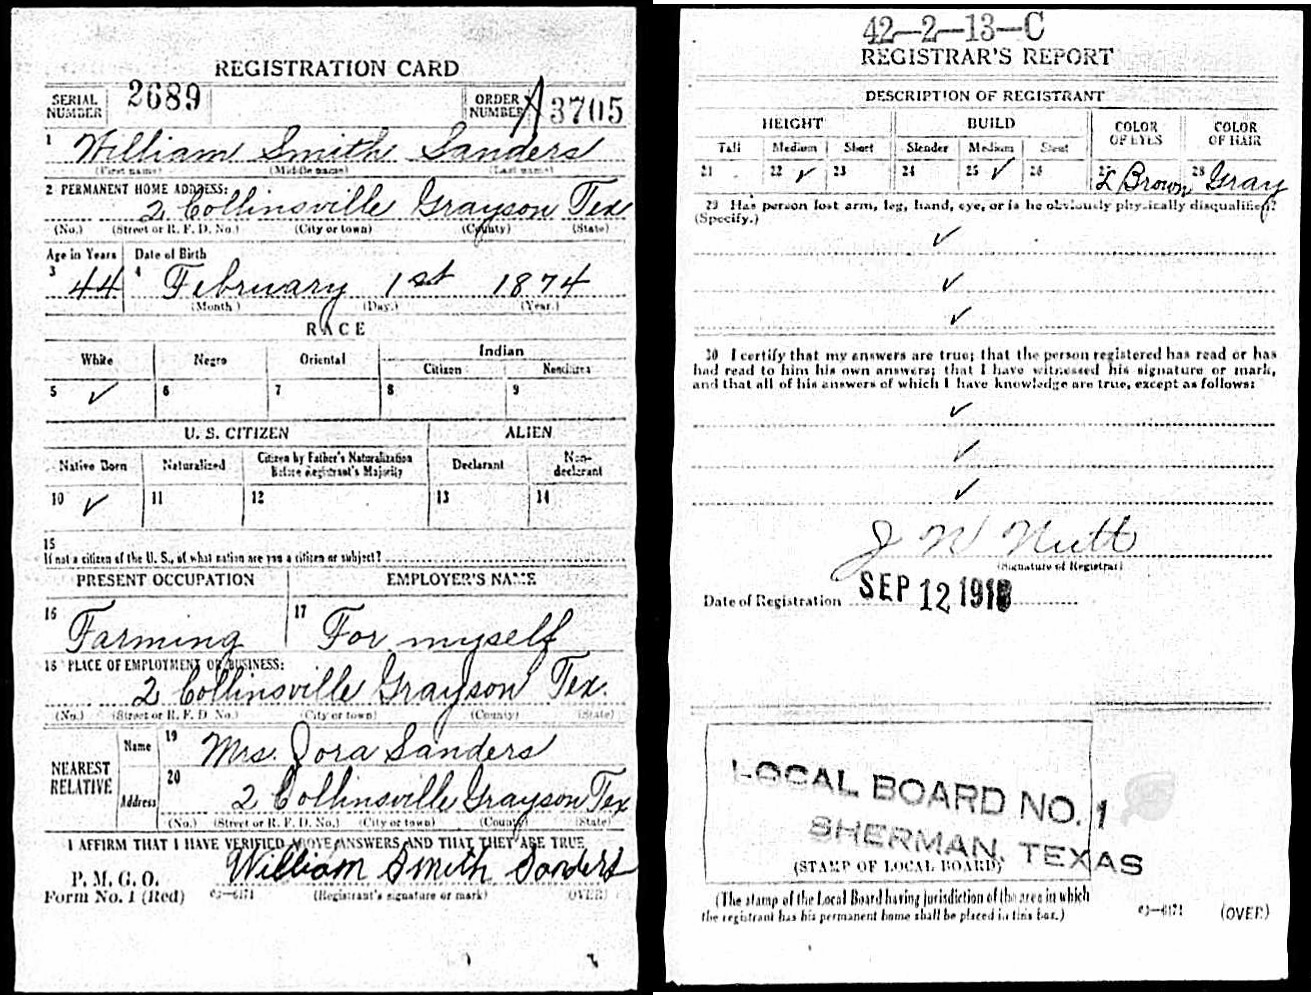 REGISTRATION CARD
SERIAL NUMBER 2689 ORDER NUMBER A 3705
1 William Smith Sanders
(First name) (Middle name) (Last name)
2 PERMANENT HOME ADDRESS:
2 Collinsville Grayson Tex
(No.) (Street or R. F. D. No.) (City or town) (County) (State)
Age in Years Date of Birth
3 44 4 February 1st 1874
(Month) (Day.) (Year.)
RACE
White Negro Oriental Indian
Citizen Noncitizen
5 ✓ 6 7 8 9
U. S. CITIZEN ALIEN
Native Born Naturalized Citizen by Father's Naturalization Before Registrant's Majority Declarant Non-declarant
10 ✓ 11 12 13 14
15
If not a citizen of the U. S., of what nation are you a citizen or subject?
PRESENT OCCUPATION EMPLOYER'S NAME
16 Farming 17 For myself
18 PLACE OF EMPLOYMENT OR BUSINESS:
2 Collinsville Grayson Tex.
(No.) (Street or R. F. D. No.) (City or town) (County) (State)
NEAREST RELATIVE
Name 19 Mrs. Zora Sanders
Address 20 2 Collinsville Grayson Tex
(No.) (Street or R. F. D. No.) (City or town) (County) (State)
I AFFIRM THAT I HAVE VERIFIED ABOVE ANSWERS AND THAT THEY ARE TRUE
William Smith Sanders
P. M. G. O.
Form No. 1 (Red) 03—6171 (Registrant's signature or mark) (OVER)
42—2—13—C
REGISTRAR'S REPORT
DESCRIPTION OF REGISTRANT
HEIGHT BUILD COLOR OF EYES COLOR OF HAIR
Tall Medium Short Slender Medium Stout
21 22 ✓ 23 24 25 ✓ 26 27 L Brown 28 Gray
29 Has person lost arm, leg, hand, eye, or is he obviously physically disqualified?
(Specify.)
✓
✓
✓
30 I certify that my answers are true; that the person registered has read or has
had read to him his own answers; that I have witnessed his signature or mark,
and that all of his answers of which I have knowledge are true, except as follows:
✓
✓
✓
J W Nutt
(Signature of Registrar)
Date of Registration SEP 12 1918
LOCAL BOARD NO. 1
SHERMAN, TEXAS
(STAMP OF LOCAL BOARD)
(The stamp of the Local Board having jurisdiction of the area in which
the registrant has his permanent home shall be placed in this box.)
03—6171 (OVER)